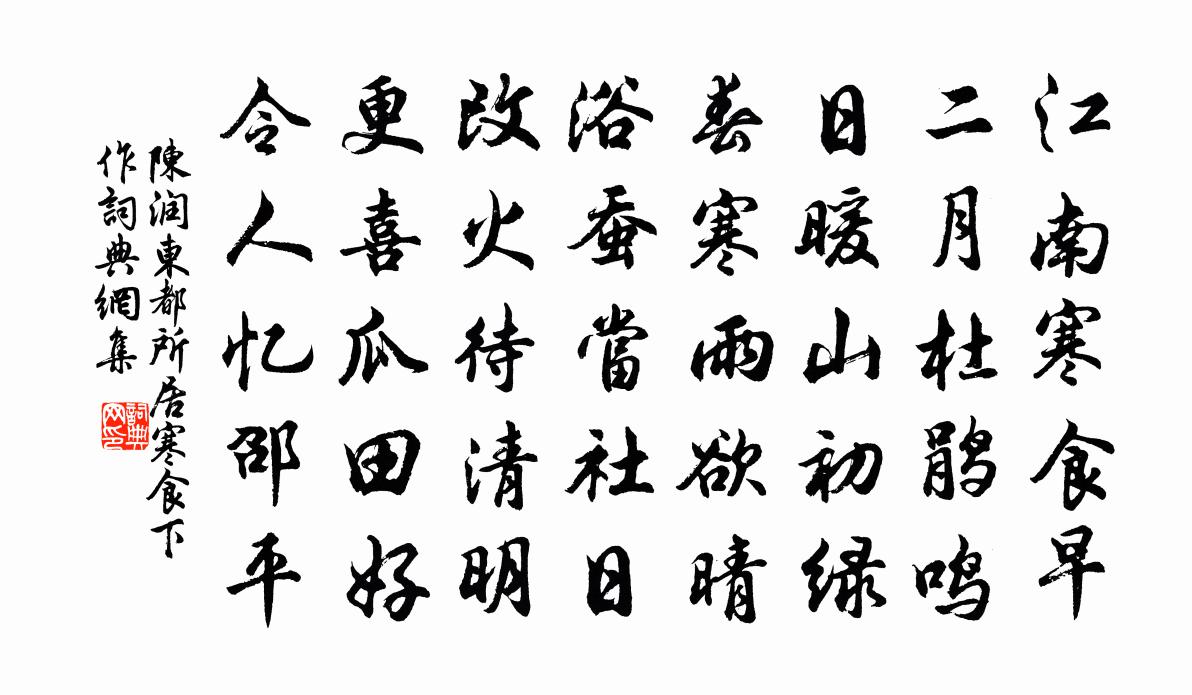 江南寒食早
二月杜鹃鸣
日暖山初绿
春寒雨欲晴
浴蚕當社日
改火待清明
更喜瓜田好
令人忆邵平
陳润東都所居寒食下
作詞典網集
詞典
网印